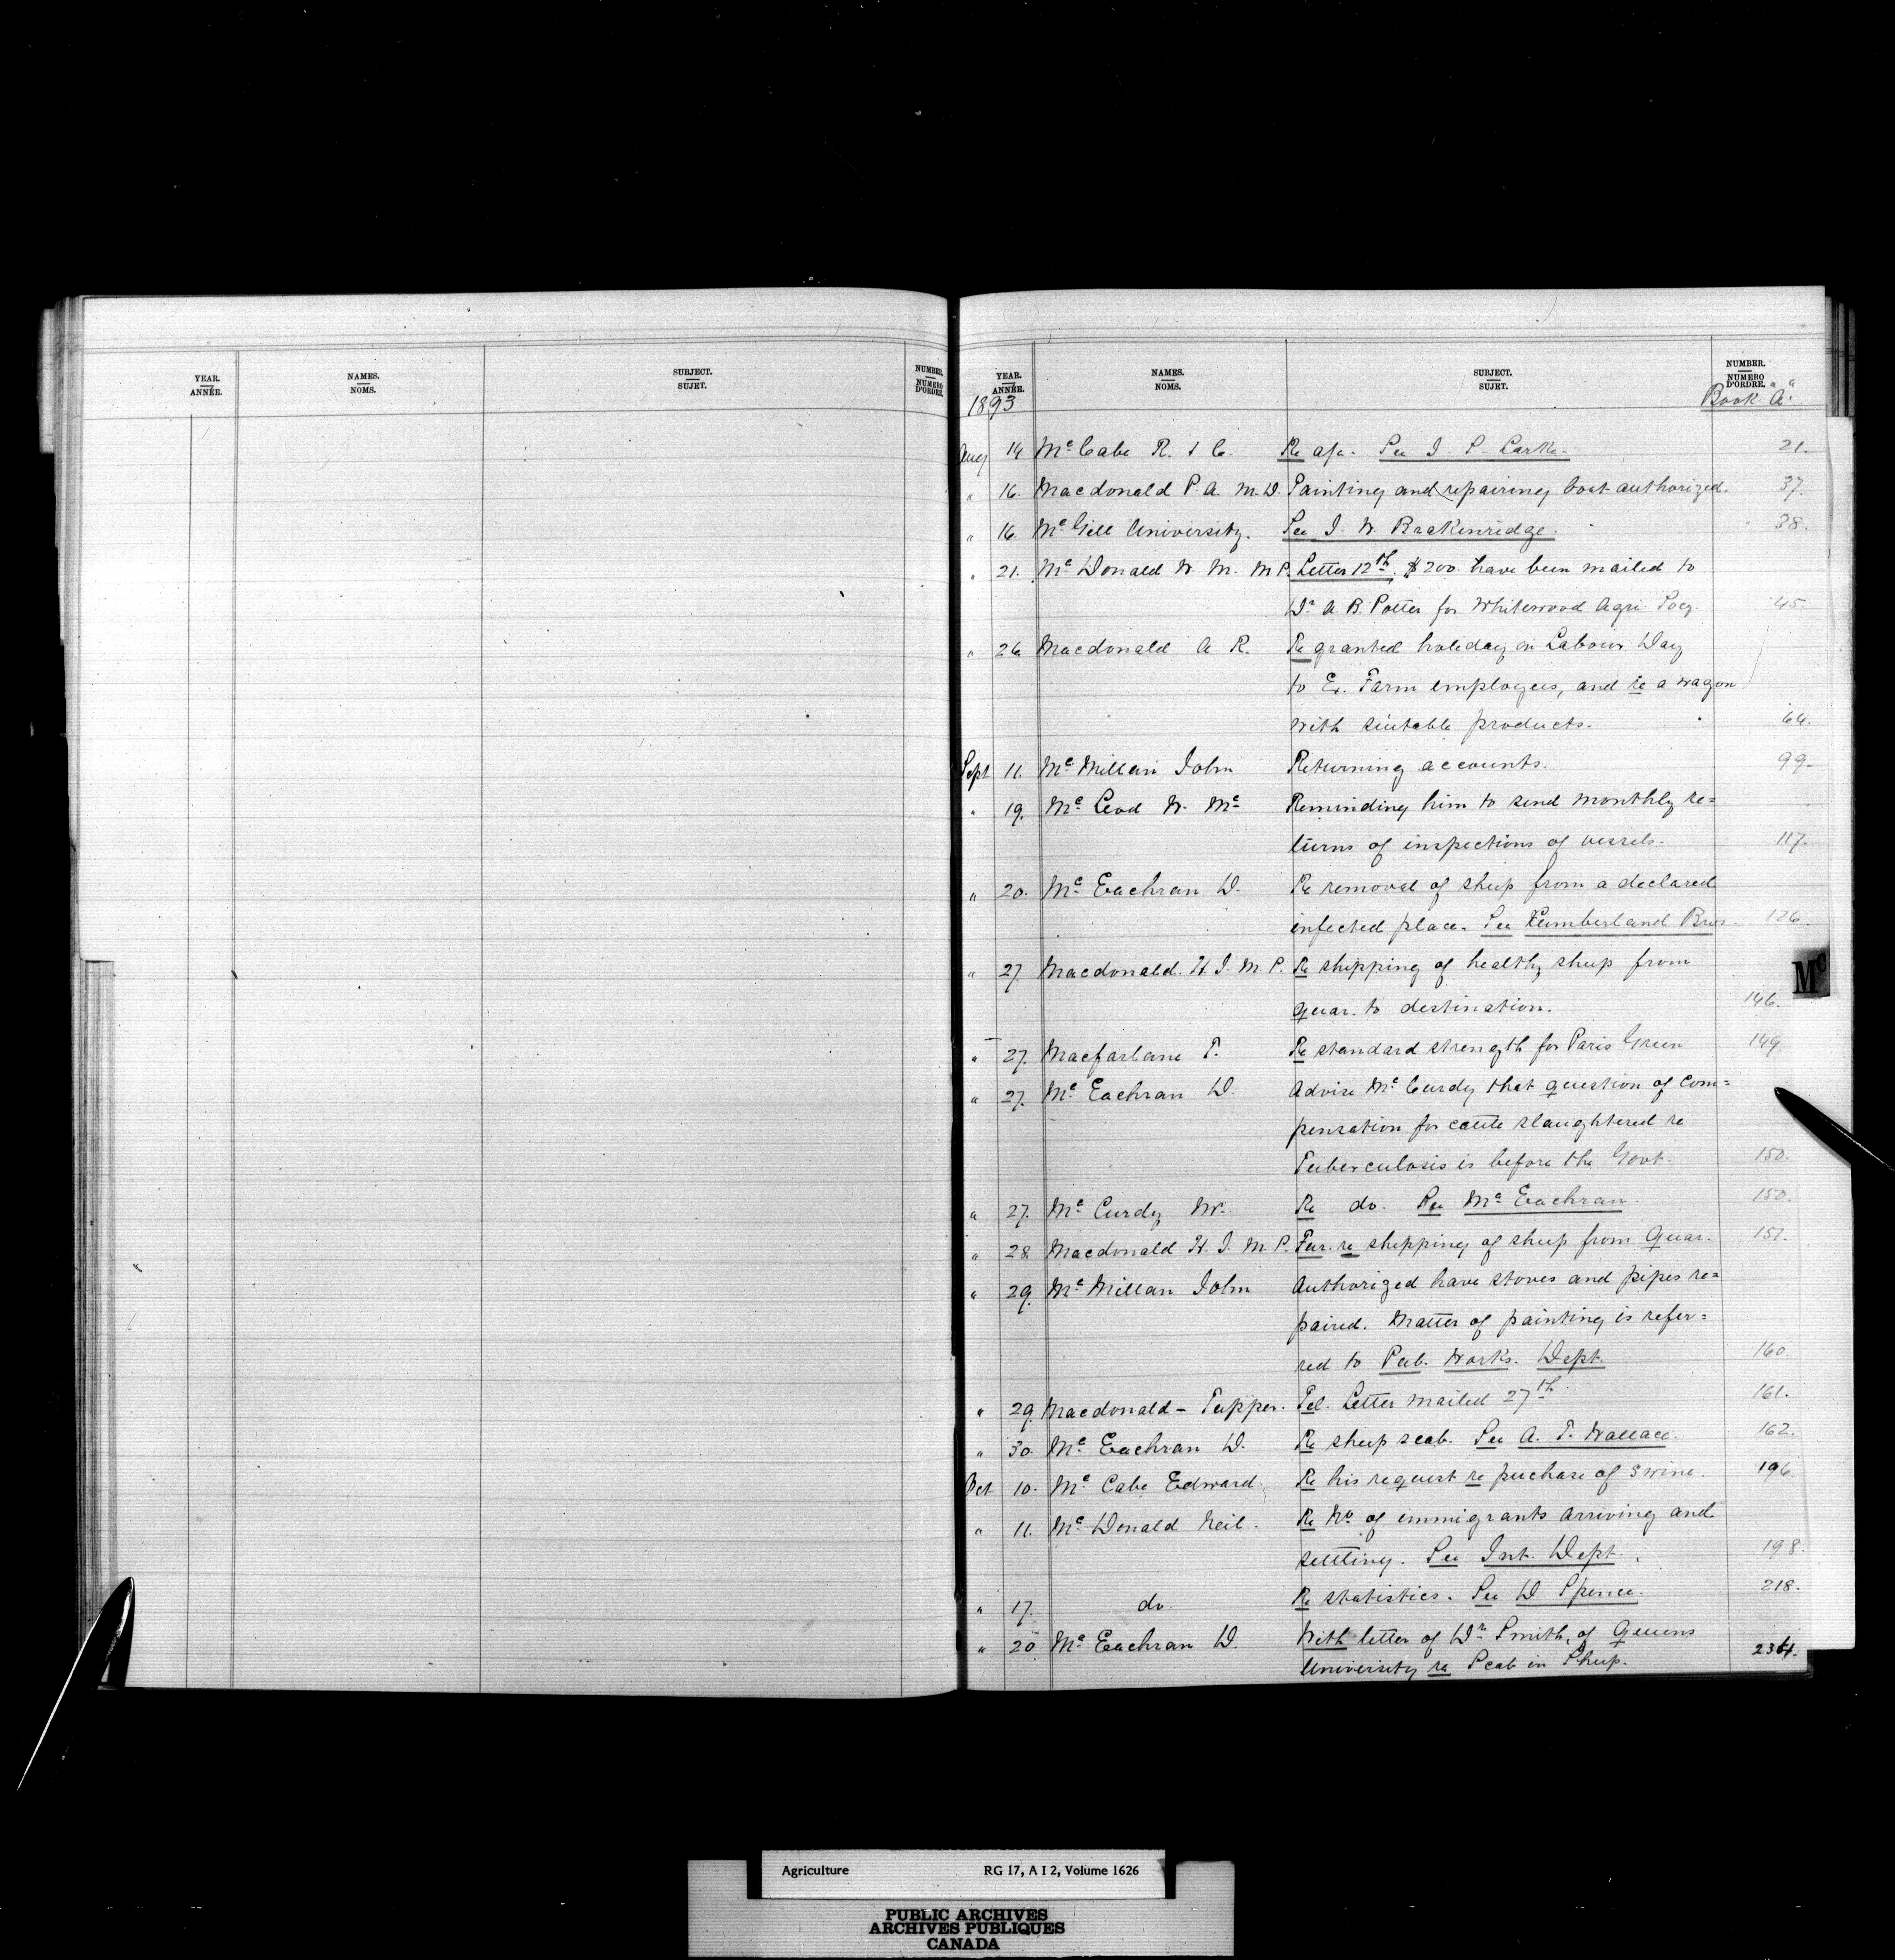 YEAR. ANNÉE. NAMES. NOMS. SUBJECT. SUJET. NUMBER. NUMERO D'ORDRE.
YEAR. ANNÉE. NAMES. NOMS. SUBJECT. SUJET. NUMBER. NUMERO D'ORDRE.
1893 Book "A"
Aug 14 Mc Cabe R. & C. Re a/c. See J. S. Larke. 21.
" 16. Macdonald P. A. M.D. Painting and repairing boat authorized. 37.
" 16. Mc Gill University. See J. W. Brakenridge. 38.
" 21. Mc Donald W. M. M P. Letter 12th. $200. have been mailed to
Dr A. B. Potter for Whitewood Agri. Socy. 45.
" 26. Macdonald A R. Re granted holiday on Labour Day
to Ex. Farm employees, and re a wagon
with suitable products. 64.
Sept 11. Mc Millan John Returning accounts. 99.
" 19. Mc Leod W. Mc Reminding him to send monthly re=
turns of inspections of vessels. 117.
" 20. Mc Eachran D. Re removal of sheep from a declared
infected place. See Kumberland Bros. 126.
" 27. Macdonald. H. J. M. P. Re shipping of healthy sheep from
quar. to destination. 146.
" 27. Macfarlane T. Re standard strength for Paris Green 149.
" 27. Mc Eachran D. Advise Mc Curdy that question of com=
pensation for cattle slaughtered re
Tuberculosis is before the Govt. 150.
" 27. Mc Curdy Mr. Re do. See Mc Eachran. 150.
" 28. Macdonald H. J. M. P. Fur. re shipping of sheep from Quar. 151.
" 29. Mc Millan John Authorized have stoves and pipes re=
paired. Matter of painting is refer=
red to Pub. Works. Dept. 160.
" 29. Macdonald - Tupper. Tel. Letter mailed 27th 161.
" 30. Mc Eachran D. Re sheep scab. See A. T. Wallace. 162.
Oct 10. Mc Cabe Edward. Re his request re puchase of swine. 196.
" 11. Mc Donald Neil. Re No of immigrants arriving and
settling. See Int. Dept. 198.
" 17. do. Re statistics. See D Spence. 218.
" 20 Mc Eachran D. With letter of Dr Smith, of Queens
University re Scab in Sheep. 234.
Mc
Agriculture RG 17, A I 2, Volume 1626
PUBLIC ARCHIVES
ARCHIVES PUBLIQUES
CANADA